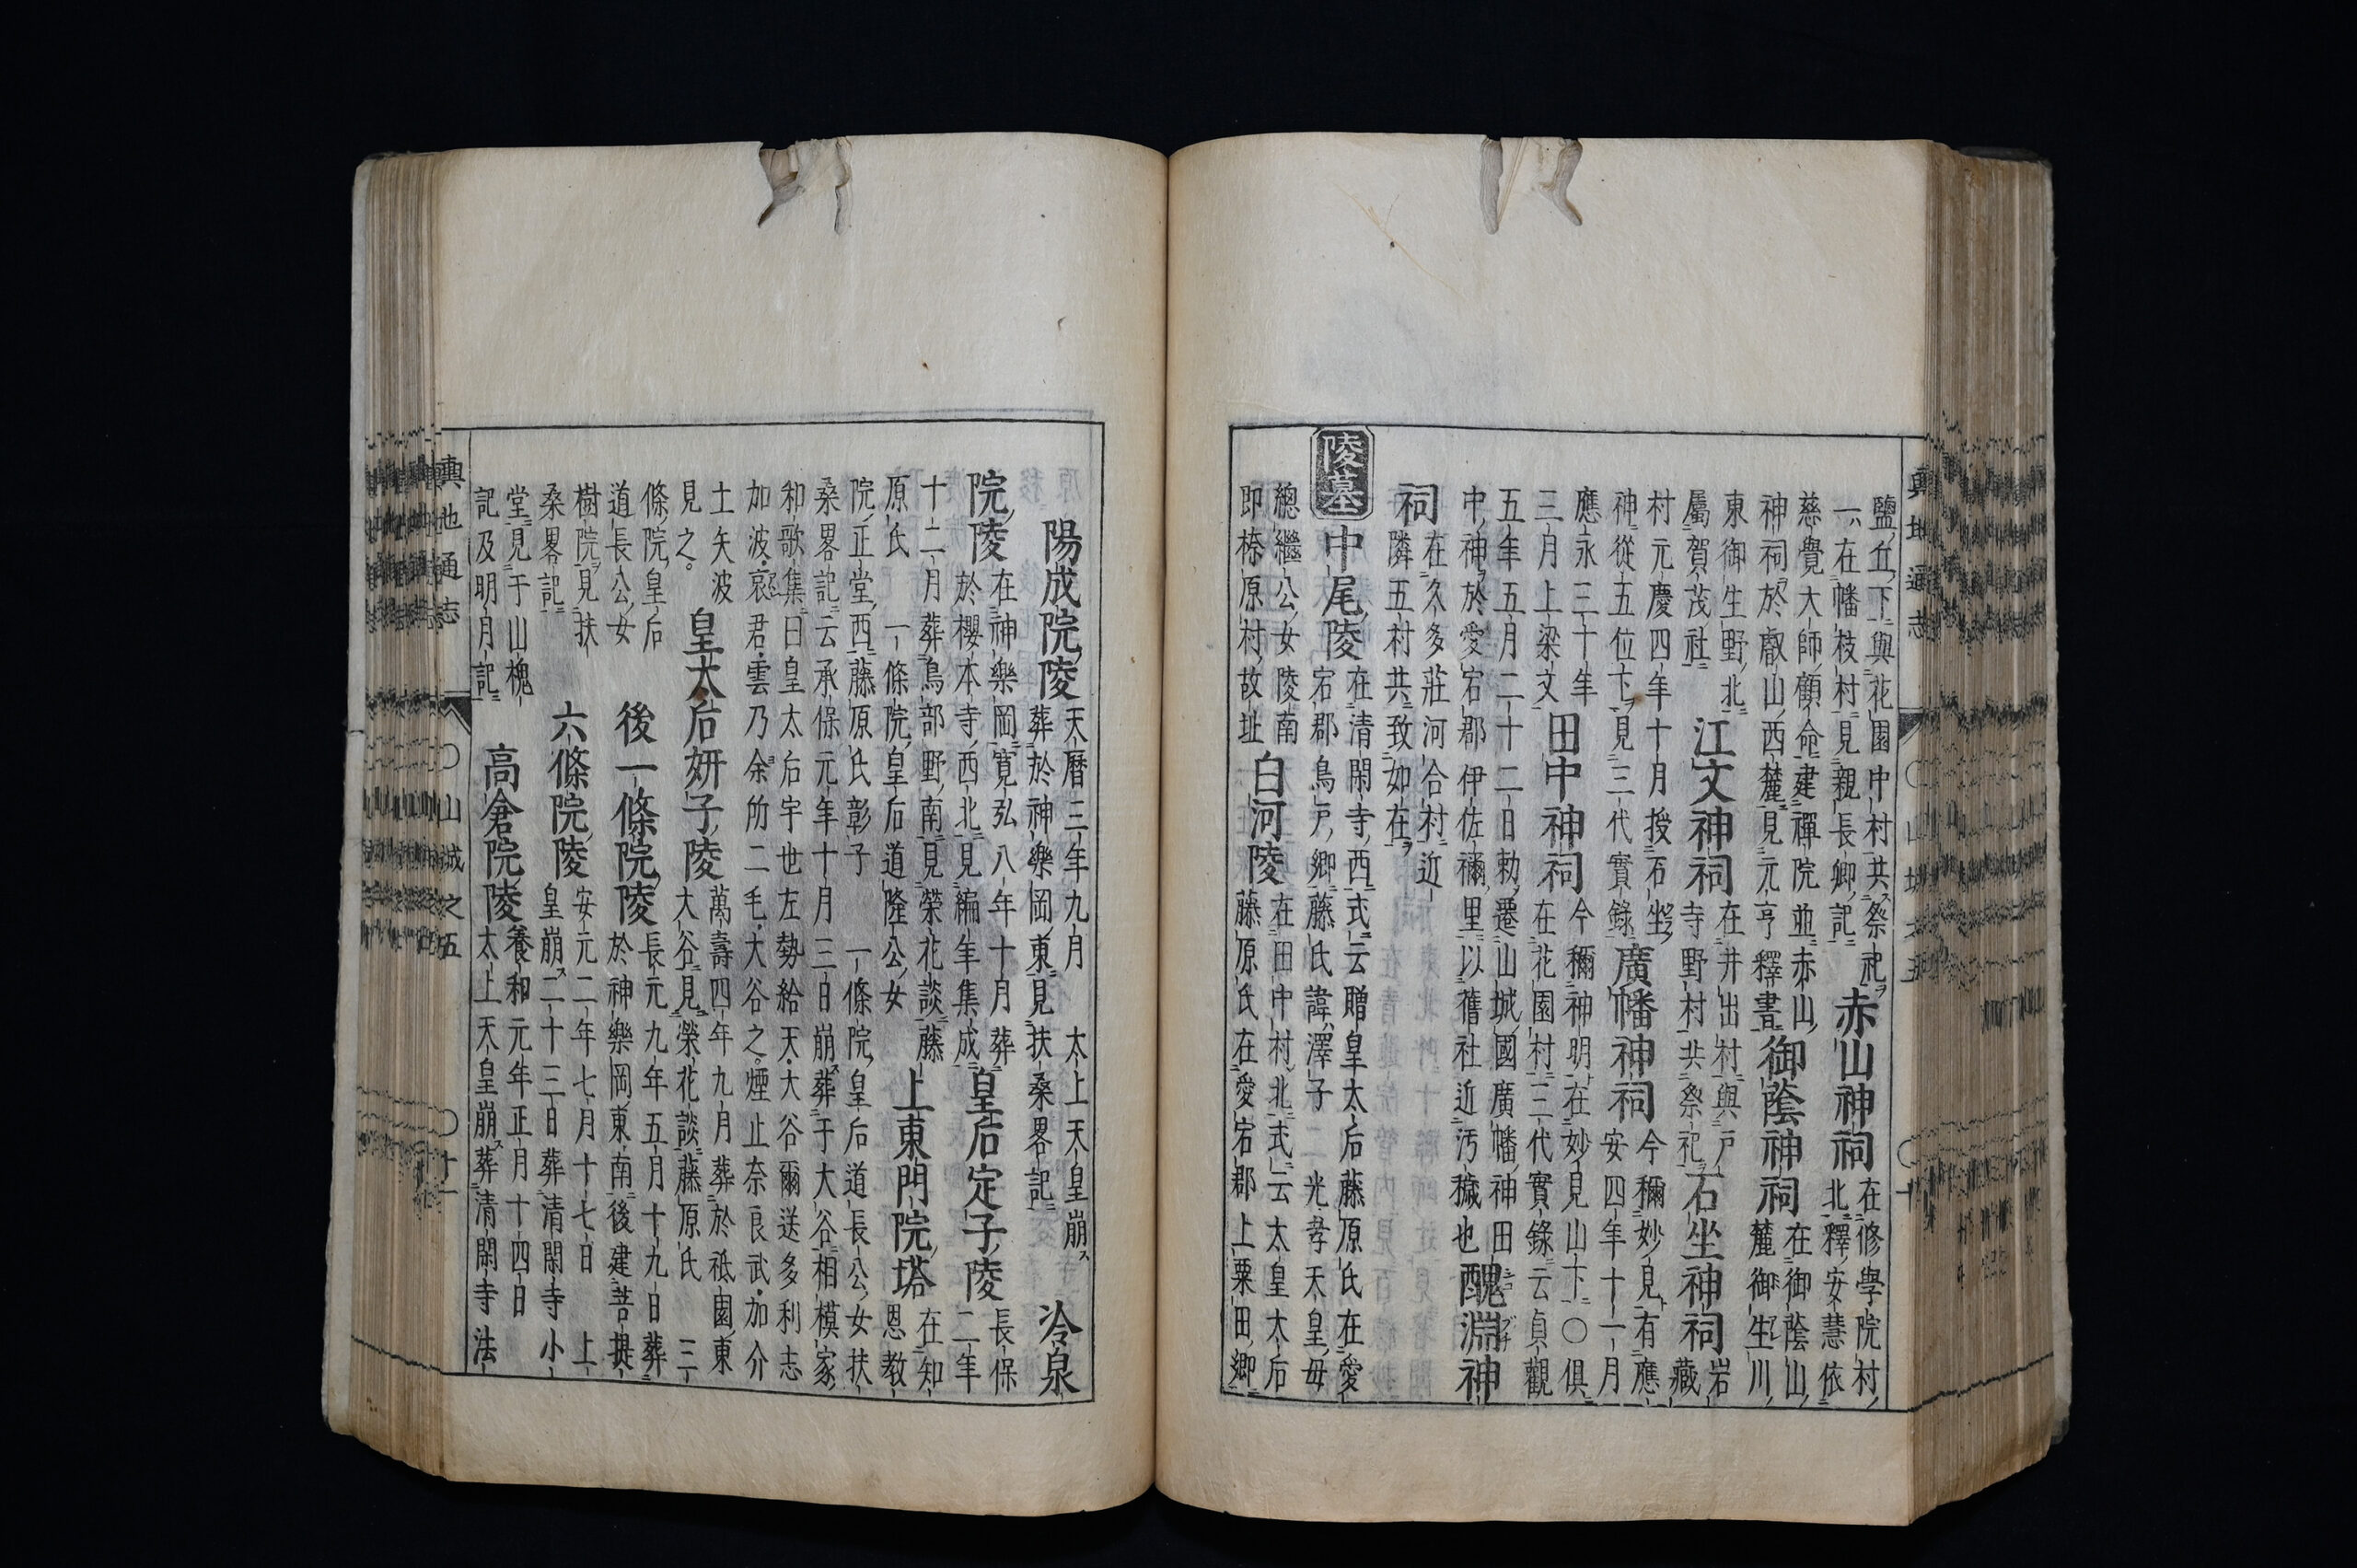 鹽丘下與花園中村共祭祀
一在幡枝村見親長卿記
赤山神祠
在修學院村
北釋安慧依
慈覺大師顧命建禪院並赤山
神祠於叡山西麓見元亨釋書
御蔭神祠
在御蔭山
麓御生川
東御生野北
屬賀茂社
江文神祠
在井出村與戸
寺野村共祭祀
石坐神祠
岩
藏
村元慶四年十月授石坐
神從五位下見三代實錄
廣幡神祠
今稱妙見有應
安四年十一月
應永三十年
三月上梁文
田中神祠
今稱神明在妙見山下〇俱
在花園村三代實錄云貞觀
五年五月二十二日勅遷山城國廣幡神田
中神於愛宕郡伊佐禰里以舊社近汚穢也
醜淵神
祠
在久多莊河合村近
隣五村共致如在
陵墓
中尾陵
在清閑寺西式云贈皇太后藤原氏在愛
宕郡鳥戸鄉藤氏諱澤子二光孝天皇母
總繼公女陵南
即 原村故址
白河陵
在田中村北式云太皇太后
藤原氏在愛宕郡上粟田鄉
輿地通志 〇山城之五 〇十
陽成院陵
天曆三年九月 太上天皇崩
葬於神樂岡東見扶桑畧記
冷泉
院陵
在神樂岡寛弘八年十月葬
於櫻本寺西北見編年集成
皇后定子陵
長保
二年
十二月葬鳥部野南見榮花談藤
原氏 一條院皇后道隆公女
上東門院塔
在知
恩教
院正堂西藤原氏彰子 一條院皇后道長公女扶
桑畧記云承保元年十月三日崩葬于大谷相模家
和歌集曰皇太后宇也左勢給天大谷爾送多利志
加波哀君雲乃余所二毛大谷之煙止奈良武加介
土矢波
見之
皇太后妍子陵
萬壽四年九月葬於祗園東
大谷見榮花談藤原氏 三
條院皇后
道長公女
後一條院陵
長元九年五月十九日葬
於神樂岡東南後建菩提
樹院見扶
桑畧記
六條院陵
安元二年七月十七日 上
皇崩二十三日葬清閑寺小
堂見于山槐
記及明月記
高倉院陵
養和元年正月十四日
太上天皇崩葬清閑寺法
輿地通志 〇山城之五 〇十一